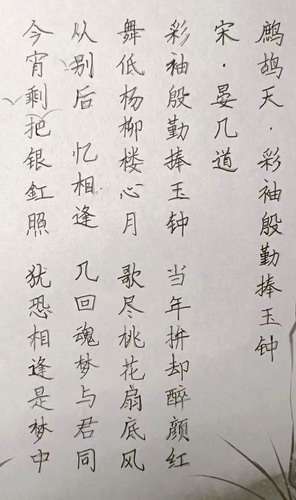 鹧鸪天·彩袖殷勤捧玉钟
宋·晏几道
彩袖殷勤捧玉钟 当年拚却醉颜红
舞低杨柳楼心月 歌尽桃花扇底风
从别后 忆相逢 几回魂梦与君同
今宵剩把银釭照 犹恐相逢是梦中